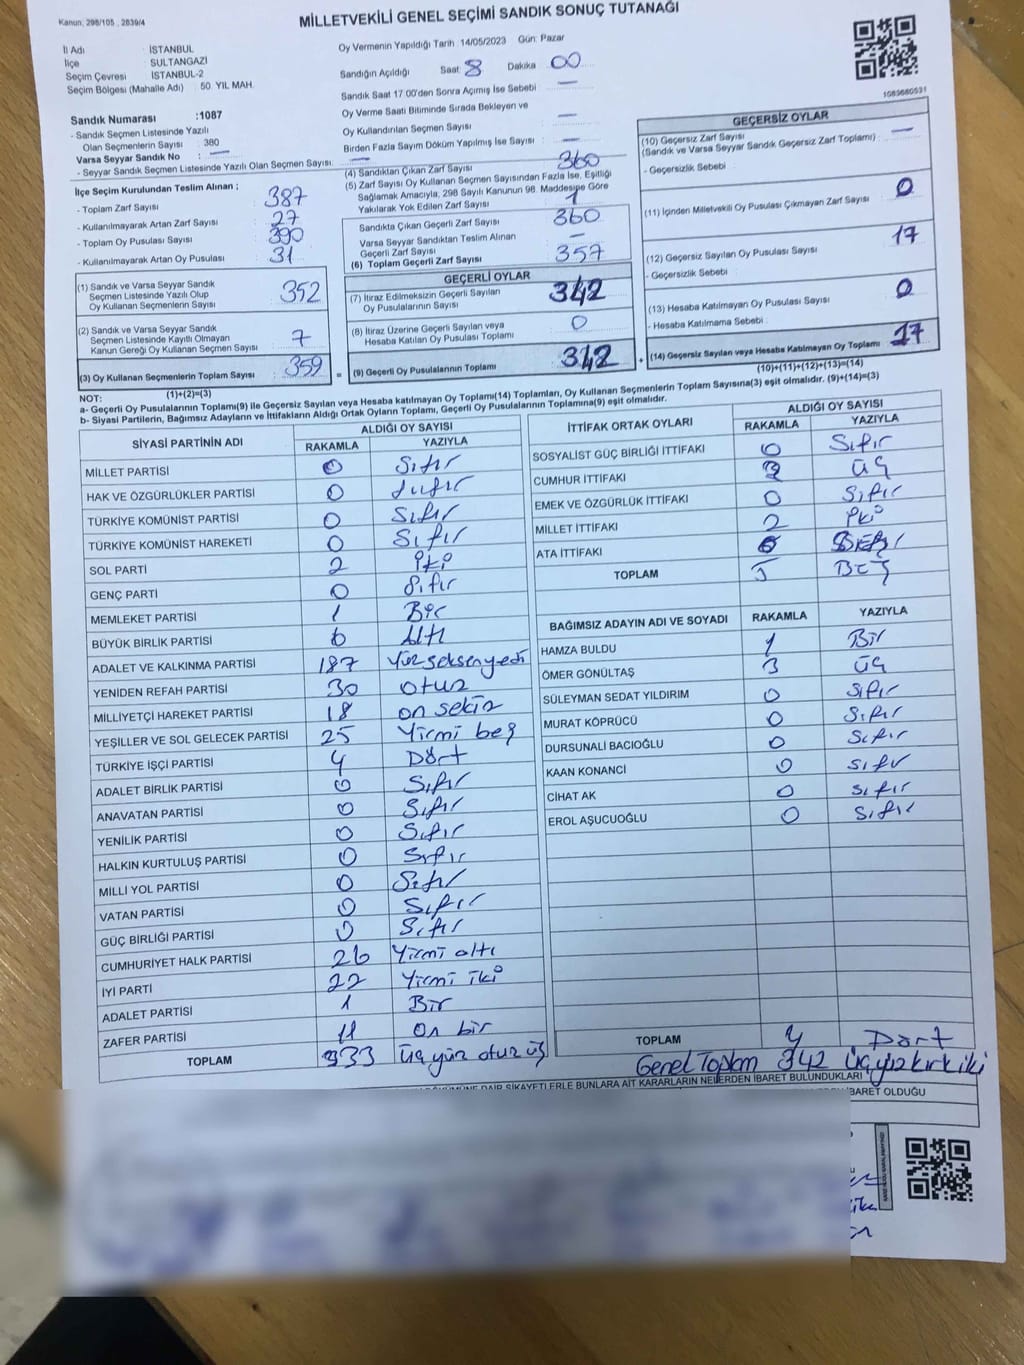 Kanun: 298/105 , 2839/4
MİLLETVEKİLİ GENEL SEÇİMİ SANDIK SONUÇ TUTANAĞI
İl Adı : İSTANBUL
İlçe : SULTANGAZİ
Seçim Çevresi : İSTANBUL-2
Seçim Bölgesi (Mahalle Adı) : 50. YIL MAH.
Sandık Numarası :1087
- Sandık Seçmen Listesinde Yazılı
Olan Seçmenlerin Sayısı : 380
Varsa Seyyar Sandık No : —
- Seyyar Sandık Seçmen Listesinde Yazılı Olan Seçmen Sayısı: —
İlçe Seçim Kurulundan Teslim Alınan ;
- Toplam Zarf Sayısı : 387
- Kullanılmayarak Artan Zarf Sayısı : 27
- Toplam Oy Pusulası Sayısı : 390
- Kullanılmayarak Artan Oy Pusulası : 31
(1) Sandık ve Varsa Seyyar Sandık
Seçmen Listesinde Yazılı Olup
Oy Kullanan Seçmenlerin Sayısı : 352
(2) Sandık ve Varsa Seyyar Sandık
Seçmen Listesinde Kayıtlı Olmayan
Kanun Gereği Oy Kullanan Seçmen Sayısı : 7
(3) Oy Kullanan Seçmenlerin Toplam Sayısı : 359
(1)+(2)=(3)
Oy Vermenin Yapıldığı Tarih :14/05/2023 Gün: Pazar
Sandığın Açıldığı Saat 8 Dakika 00
Sandık Saat 17:00'den Sonra Açımış İse Sebebi —
Oy Verme Saati Bitiminde Sırada Bekleyen ve
Oy Kullandırılan Seçmen Sayısı —
Birden Fazla Sayım Döküm Yapılmış İse Sayısı : —
(4) Sandıktan Çıkan Zarf Sayısı : 360
(5) Zarf Sayısı Oy Kullanan Seçmen Sayısından Fazla İse, Eşitliği
Sağlamak Amacıyla, 298 Sayılı Kanunun 98. Maddesine Göre
Yakılarak Yok Edilen Zarf Sayısı : 1
Sandıkta Çıkan Geçerli Zarf Sayısı : 360
Varsa Seyyar Sandıktan Teslim Alınan
Geçerli Zarf Sayısı : —
(6) Toplam Geçerli Zarf Sayısı : 357
GEÇERLİ OYLAR
(7) İtiraz Edilmeksizin Geçerli Sayılan
Oy Pusulalarının Sayısı : 342
(8) İtiraz Üzerine Geçerli Sayılan veya
Hesaba Katılan Oy Pusulası Toplamı : 0
(9) Geçerli Oy Pusulalarının Toplamı : 342
1083680531
GEÇERSİZ OYLAR
(10) Geçersiz Zarf Sayısı
(Sandık ve Varsa Seyyar Sandık Geçersiz Zarf Toplamı) : —
- Geçersizlik Sebebi :
(11) İçinden Milletvekili Oy Pusulası Çıkmayan Zarf Sayısı : 0
(12) Geçersiz Sayılan Oy Pusulası Sayısı : 17
- Geçersizlik Sebebi :
(13) Hesaba Katılmayan Oy Pusulası Sayısı : 0
- Hesaba Katılmama Sebebi :
(14) Geçersiz Sayılan veya Hesaba Katılmayan Oy Toplamı : 17
(10)+(11)+(12)+(13)=(14)
NOT:
a- Geçerli Oy Pusulalarının Toplamı(9) ile Geçersiz Sayılan veya Hesaba katılmayan Oy Toplamı(14) Toplamları, Oy Kullanan Seçmenlerin Toplam Sayısına(3) eşit olmalıdır. (9)+(14)=(3)
b- Siyasi Partilerin, Bağımsız Adayların ve İttifakların Aldığı Ortak Oyların Toplamı, Geçerli Oy Pusulalarının Toplamına(9) eşit olmalıdır.
SİYASİ PARTİNİN ADI ALDIĞI OY SAYISI
RAKAMLA YAZIYLA
MİLLET PARTİSİ 0 Sıfır
HAK VE ÖZGÜRLÜKLER PARTİSİ 0 Sıfır
TÜRKİYE KOMÜNİST PARTİSİ 0 Sıfır
TÜRKİYE KOMÜNİST HAREKETİ 0 Sıfır
SOL PARTİ 2 İki
GENÇ PARTİ 0 Sıfır
MEMLEKET PARTİSİ 1 Bir
BÜYÜK BİRLİK PARTİSİ 6 Altı
ADALET VE KALKINMA PARTİSİ 187 Yüz seksen yedi
YENİDEN REFAH PARTİSİ 30 otuz
MİLLİYETÇİ HAREKET PARTİSİ 18 on sekiz
YEŞİLLER VE SOL GELECEK PARTİSİ 25 Yirmi beş
TÜRKİYE İŞÇİ PARTİSİ 4 Dört
ADALET BİRLİK PARTİSİ 0 Sıfır
ANAVATAN PARTİSİ 0 Sıfır
YENİLİK PARTİSİ 0 Sıfır
HALKIN KURTULUŞ PARTİSİ 0 Sıfır
MİLLİ YOL PARTİSİ 0 Sıfır
VATAN PARTİSİ 0 Sıfır
GÜÇ BİRLİĞİ PARTİSİ 0 Sıfır
CUMHURİYET HALK PARTİSİ 26 Yirmi altı
İYİ PARTİ 22 Yirmi iki
ADALET PARTİSİ 1 Bir
ZAFER PARTİSİ 11 On bir
TOPLAM 333 Üç yüz otuz üç
İTTİFAK ORTAK OYLARI ALDIĞI OY SAYISI
RAKAMLA YAZIYLA
SOSYALİST GÜÇ BİRLİĞİ İTTİFAKI 0 Sıfır
CUMHUR İTTİFAKI 3 Üç
EMEK VE ÖZGÜRLÜK İTTİFAKI 0 Sıfır
MİLLET İTTİFAKI 2 İki
ATA İTTİFAKI
TOPLAM 5 BEŞ
BAĞIMSIZ ADAYIN ADI VE SOYADI RAKAMLA YAZIYLA
HAMZA BULDU 1 Bir
ÖMER GÖNÜLTAŞ 3 Üç
SÜLEYMAN SEDAT YILDIRIM 0 Sıfır
MURAT KÖPRÜCÜ 0 Sıfır
DURSUNALİ BACIOĞLU 0 Sıfır
KAAN KONANCİ 0 Sıfır
CİHAT AK 0 Sıfır
EROL AŞUCUOĞLU 0 Sıfır
TOPLAM 4 Dört
Genel Toplam 342 Üç yüz kırk iki
ŞİKAYETLERLE BUNLARA AİT KARARLARIN NELERDEN İBARET BULUNDUKLARI
İBARET OLDUĞU